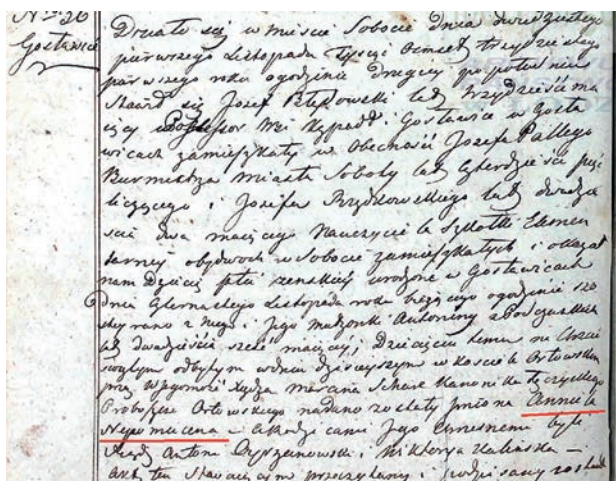 Nro 26
Gosławice
Działo się w mieście Sobocie dnia dwudziestego
pierwszego Listopada Tysiąc Ośmset trzydziestego
pierwszego roku o godzinie drugiey po południu
Stawił się Jozef lat trzydzieści ma
iący Possessor Wsi i Gosławice w Gosła
wicach zamieszkały w obecności Jozefa Pallego
Burmistrza miasta Soboty lat czterdzieści pięć
liczącego i Jozefa lat dwadzie
ścia dwa maiącego Nauczyciela Szkołki Elemen
tarney obydwoch w Sobocie zamieszkałych i okazał
nam dziecię płci zenskiey urodzone w Gosławicach
dnia Listopada roku bieżącego o godzinie szo
stey rano z niego i Jego małżonki Antoniny z
lat dwadzieścia sześć maiącey; Dziecięciu temu na Chrzcie
swiętym odbytym w dniu dzisieyszym w kościele Orłowskim
przez Xiędza Marcina Kanonika Łęczyckiego
Proboszcza Orłowskiego nadano zostały imiona Anniela
Nepomucena – a Rodzicami Jego Chrzestnemi byli
Xiądz Antoni i Wiktorya –
Akt ten Stawaiącym przeczytany i podpisany został